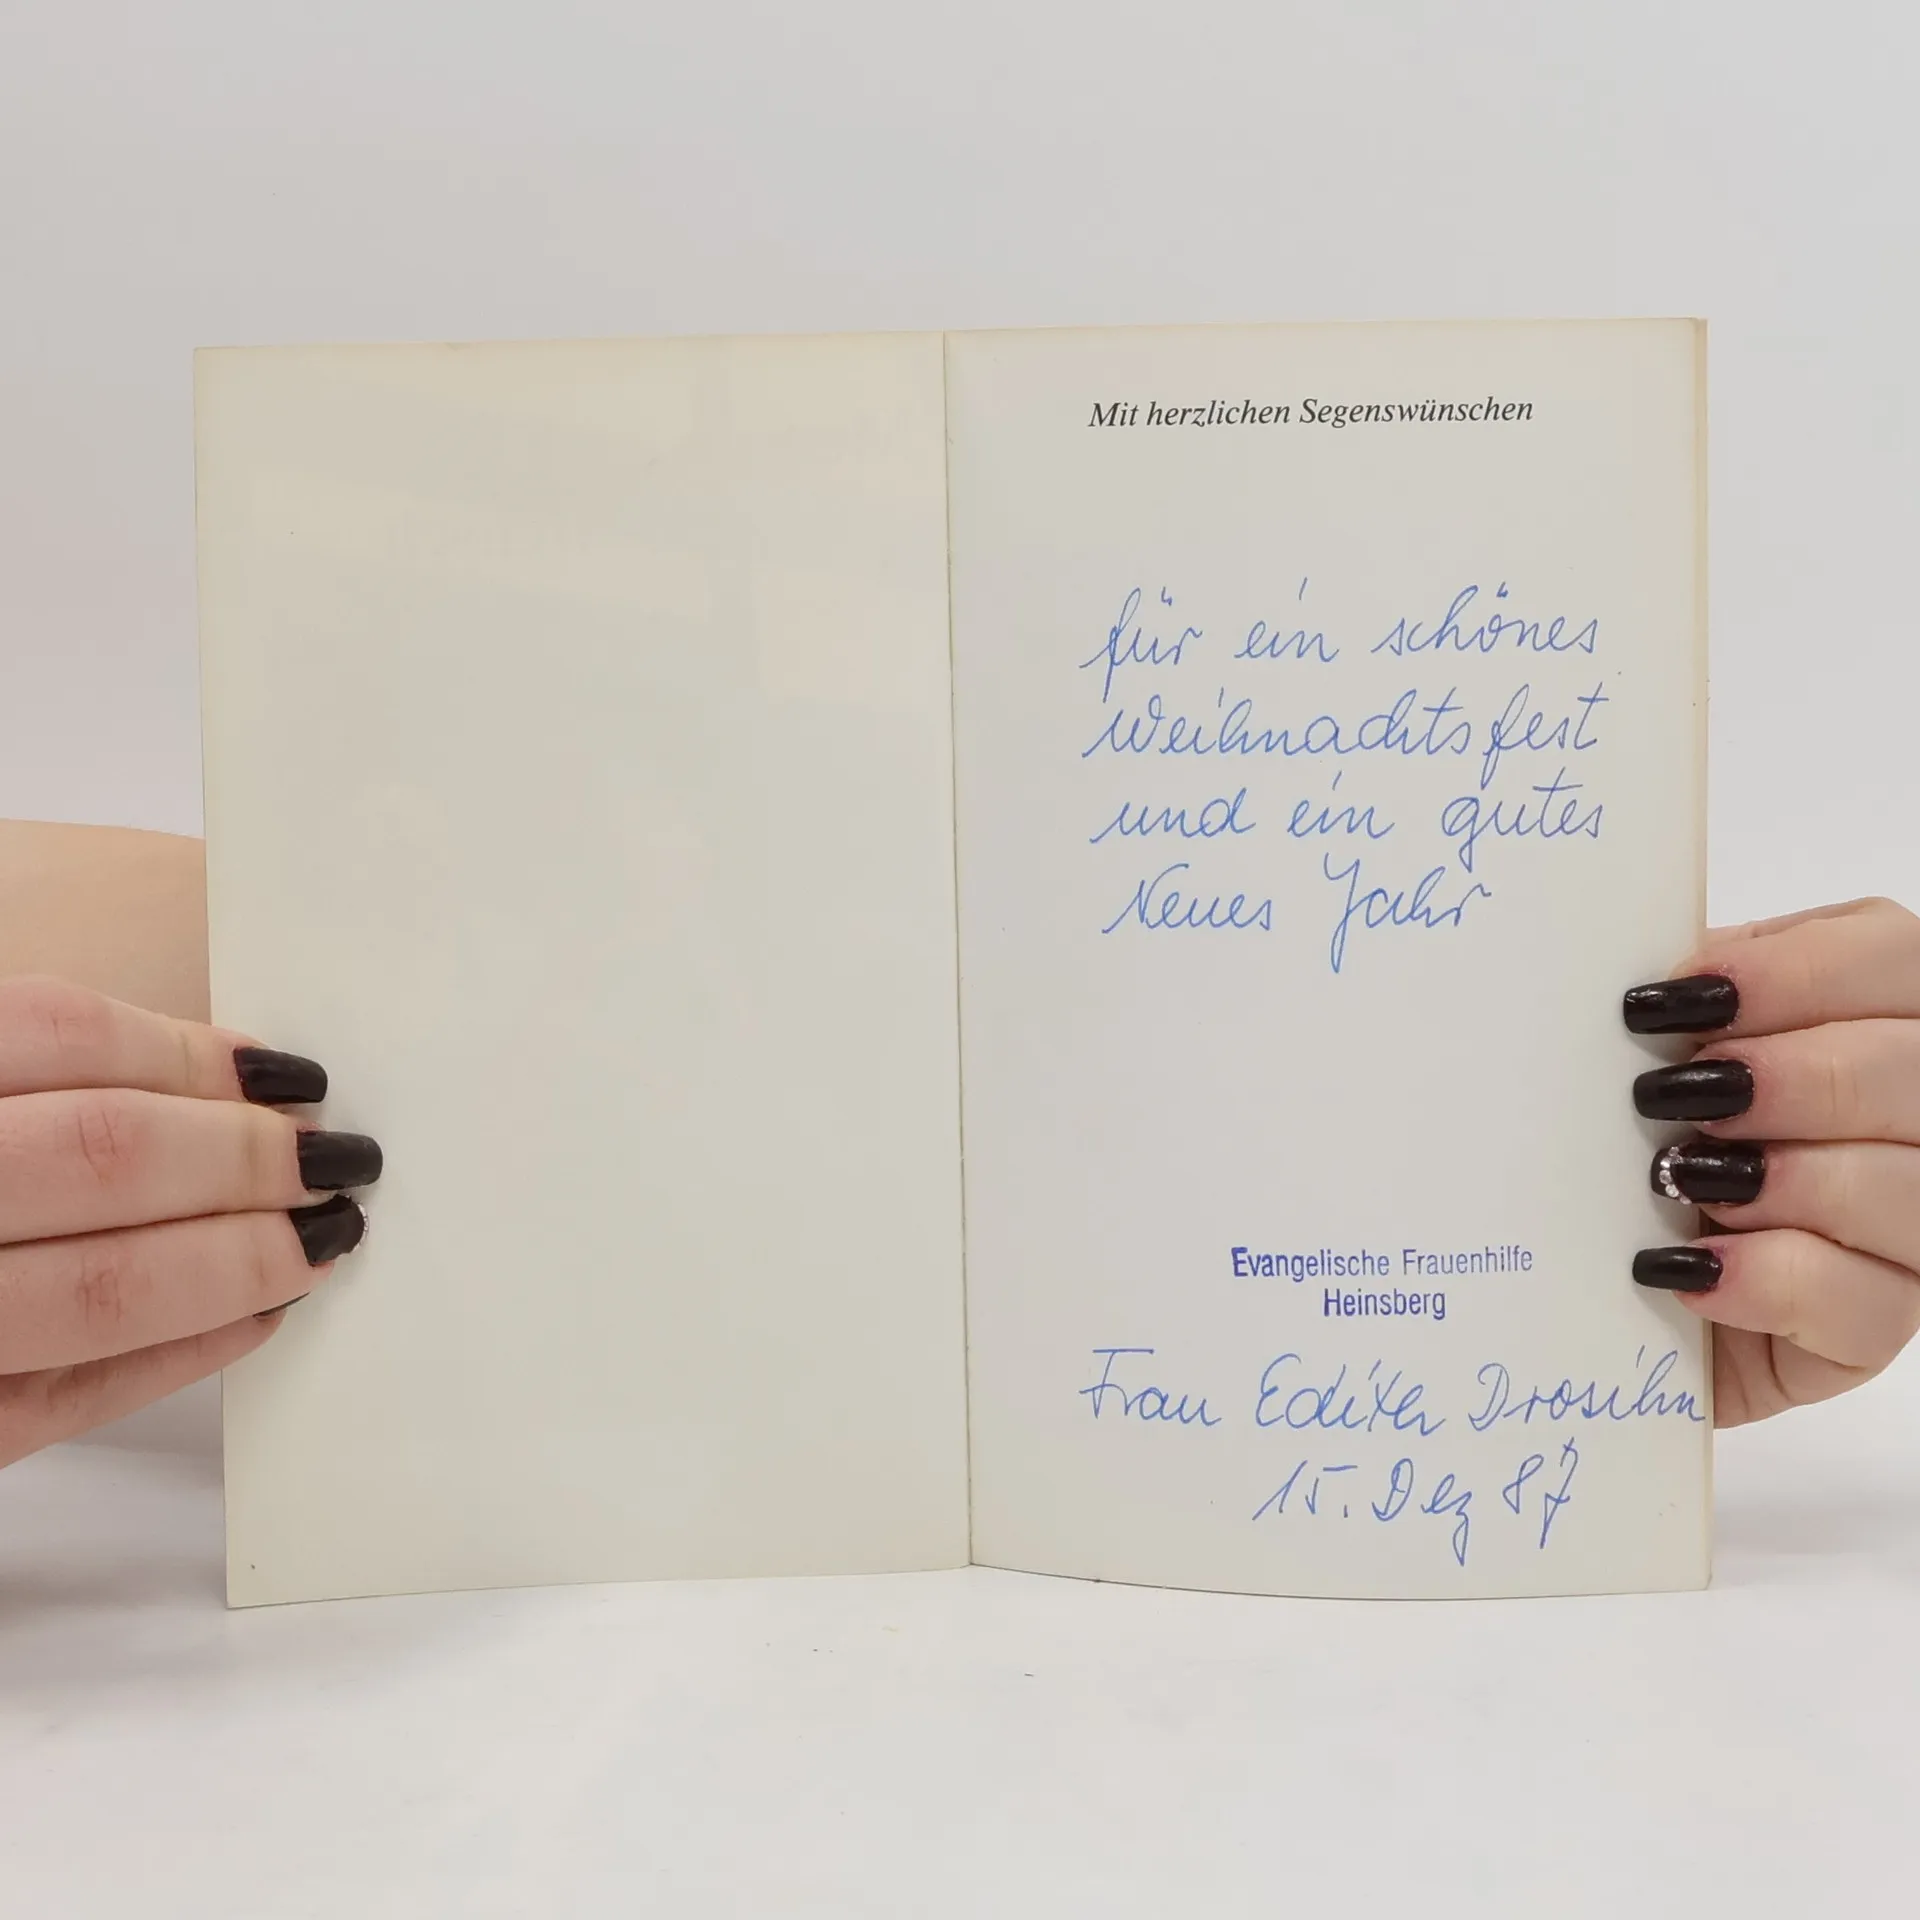 Mit herzlichen Segenswünschen
für ein schönes
Weihnachtsfest
und ein gutes
Neues Jahr
Evangelische Frauenhilfe
Heinsberg
Frau Editha Drosihn
15. Dez 87